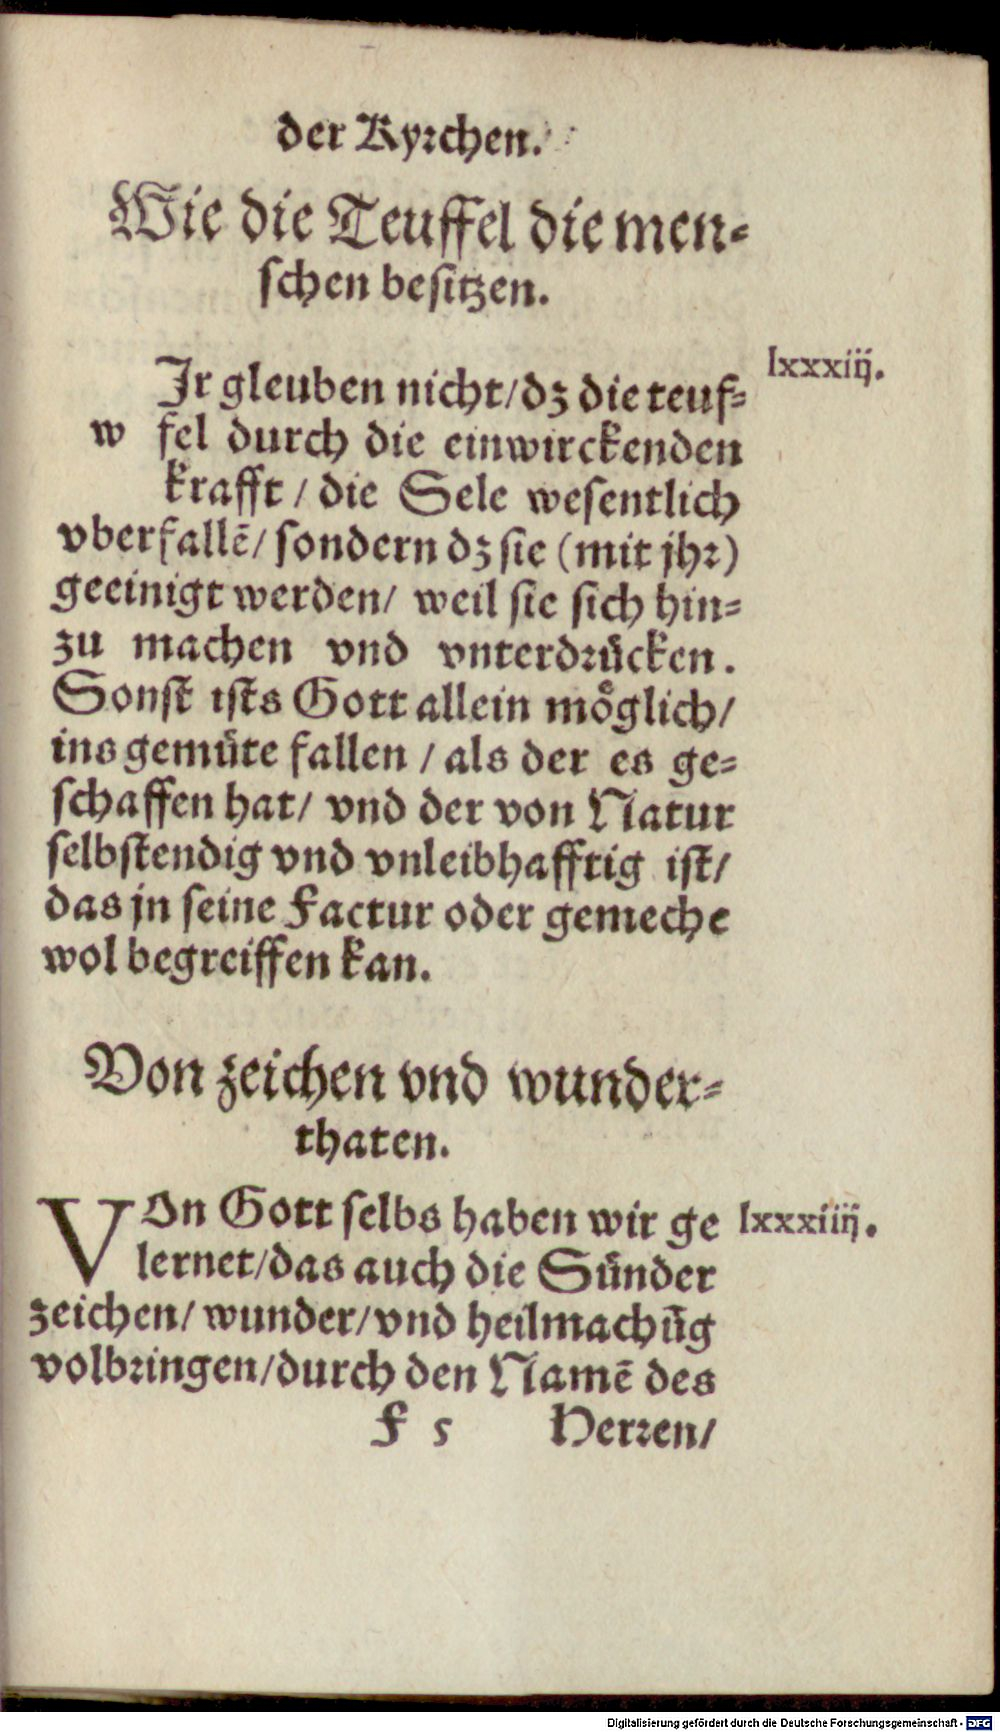 der Kyrchen.
Wie die Teuffel die men⸗
schen besitzen.
lxxxiij.
w Jr gleuben nicht/dz die teuf⸗
fel durch die einwirckenden
krafft / die Sele wesentlich
vberfallē/ sondern dz sie (mit jhr)
geeinigt werden/ weil sie sich hin⸗
zu machen vnd vnterdrücken.
Sonst ists Gott allein möglich/
ins gemüte fallen / als der es ge⸗
schaffen hat/ vnd der von Natur
selbstendig vnd vnleibhafftig ist/
das jn seine Factur oder gemeche
wol begreiffen kan.
Von zeichen vnd wunder⸗
thaten.
VOn Gott selbs haben wir ge lxxxiiij.
lernet/das auch die Sünder
zeichen/ wunder/vnd heilmachūg
volbringen/durch den Namē des
F 5 Herren/
Digitalisierung gefördert durch die Deutsche Forschungsgemeinschaft - DFG